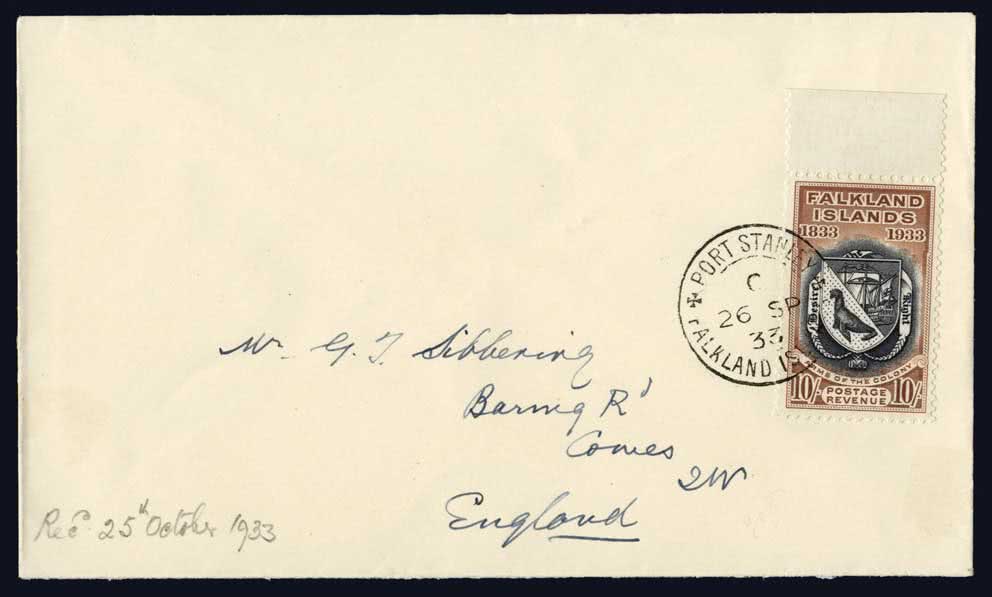 FALKLAND
ISLANDS
1833 1933
Desire Right
ARMS OF THE COLONY
10/- POSTAGE REVENUE 10/-
PORT STANLEY
C
26 SP
33
FALKLAND IS
Mr. G. T. Sibbering
Baring Rd
Cowes
IW
England
Recd. 25th October 1933